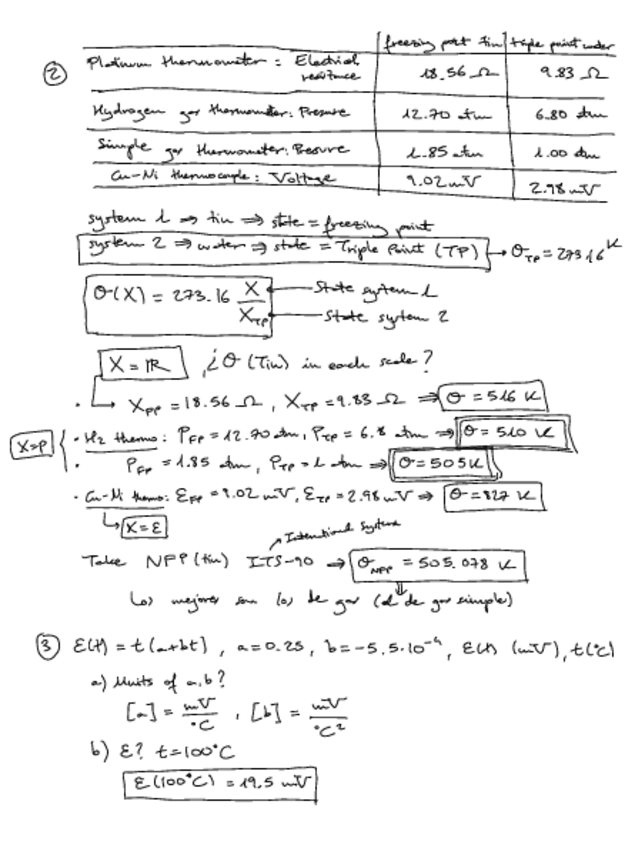 freezing point tin | triple point water
② Platinum thermometer: Electrical resistance 18.56 Ω 9.83 Ω
Hydrogen gas thermometer: Pressure 12.70 atm 6.80 atm
Simple gas thermometer: Pressure 1.85 atm 1.00 atm
Cu-Ni thermocouple: Voltage 9.02 mV 2.98 mV
system 1 ⇒ tin ⇒ state = freezing point
system 2 ⇒ water ⇒ state = Triple Point (TP) → θTP = 273.16 K
θ(X) = 273.16 X/XTP
State system 1
State system 2
X = R ¿θ (Tin) in each scale?
XFP = 18.56 Ω, XTP = 9.83 Ω ⇒ θ = 516 K
X=P { · H2 thermo: PFP = 12.70 atm, PTP = 6.8 atm ⇒ θ = 510 K
· PFP = 1.85 atm, PTP = 1 atm ⇒ θ = 505 K
· Cu-Ni thermo: ℰFP = 9.02 mV, ℰTP = 2.98 mV ⇒ θ = 827 K
X = ℰ
International System
Take NFP (tin) ITS-90 ⇒ θNFP = 505.078 K
Los mejores son los de gas (el de gas simple)
③ ℰ(t) = t(a+bt), a = 0.25, b = -5.5·10⁻⁴, ℰ(t) (mV), t(°C)
a) Units of a, b?
[a] = mV/°C, [b] = mV/°C²
b) ℰ? t = 100°C
ℰ(100°C) = 19.5 mV